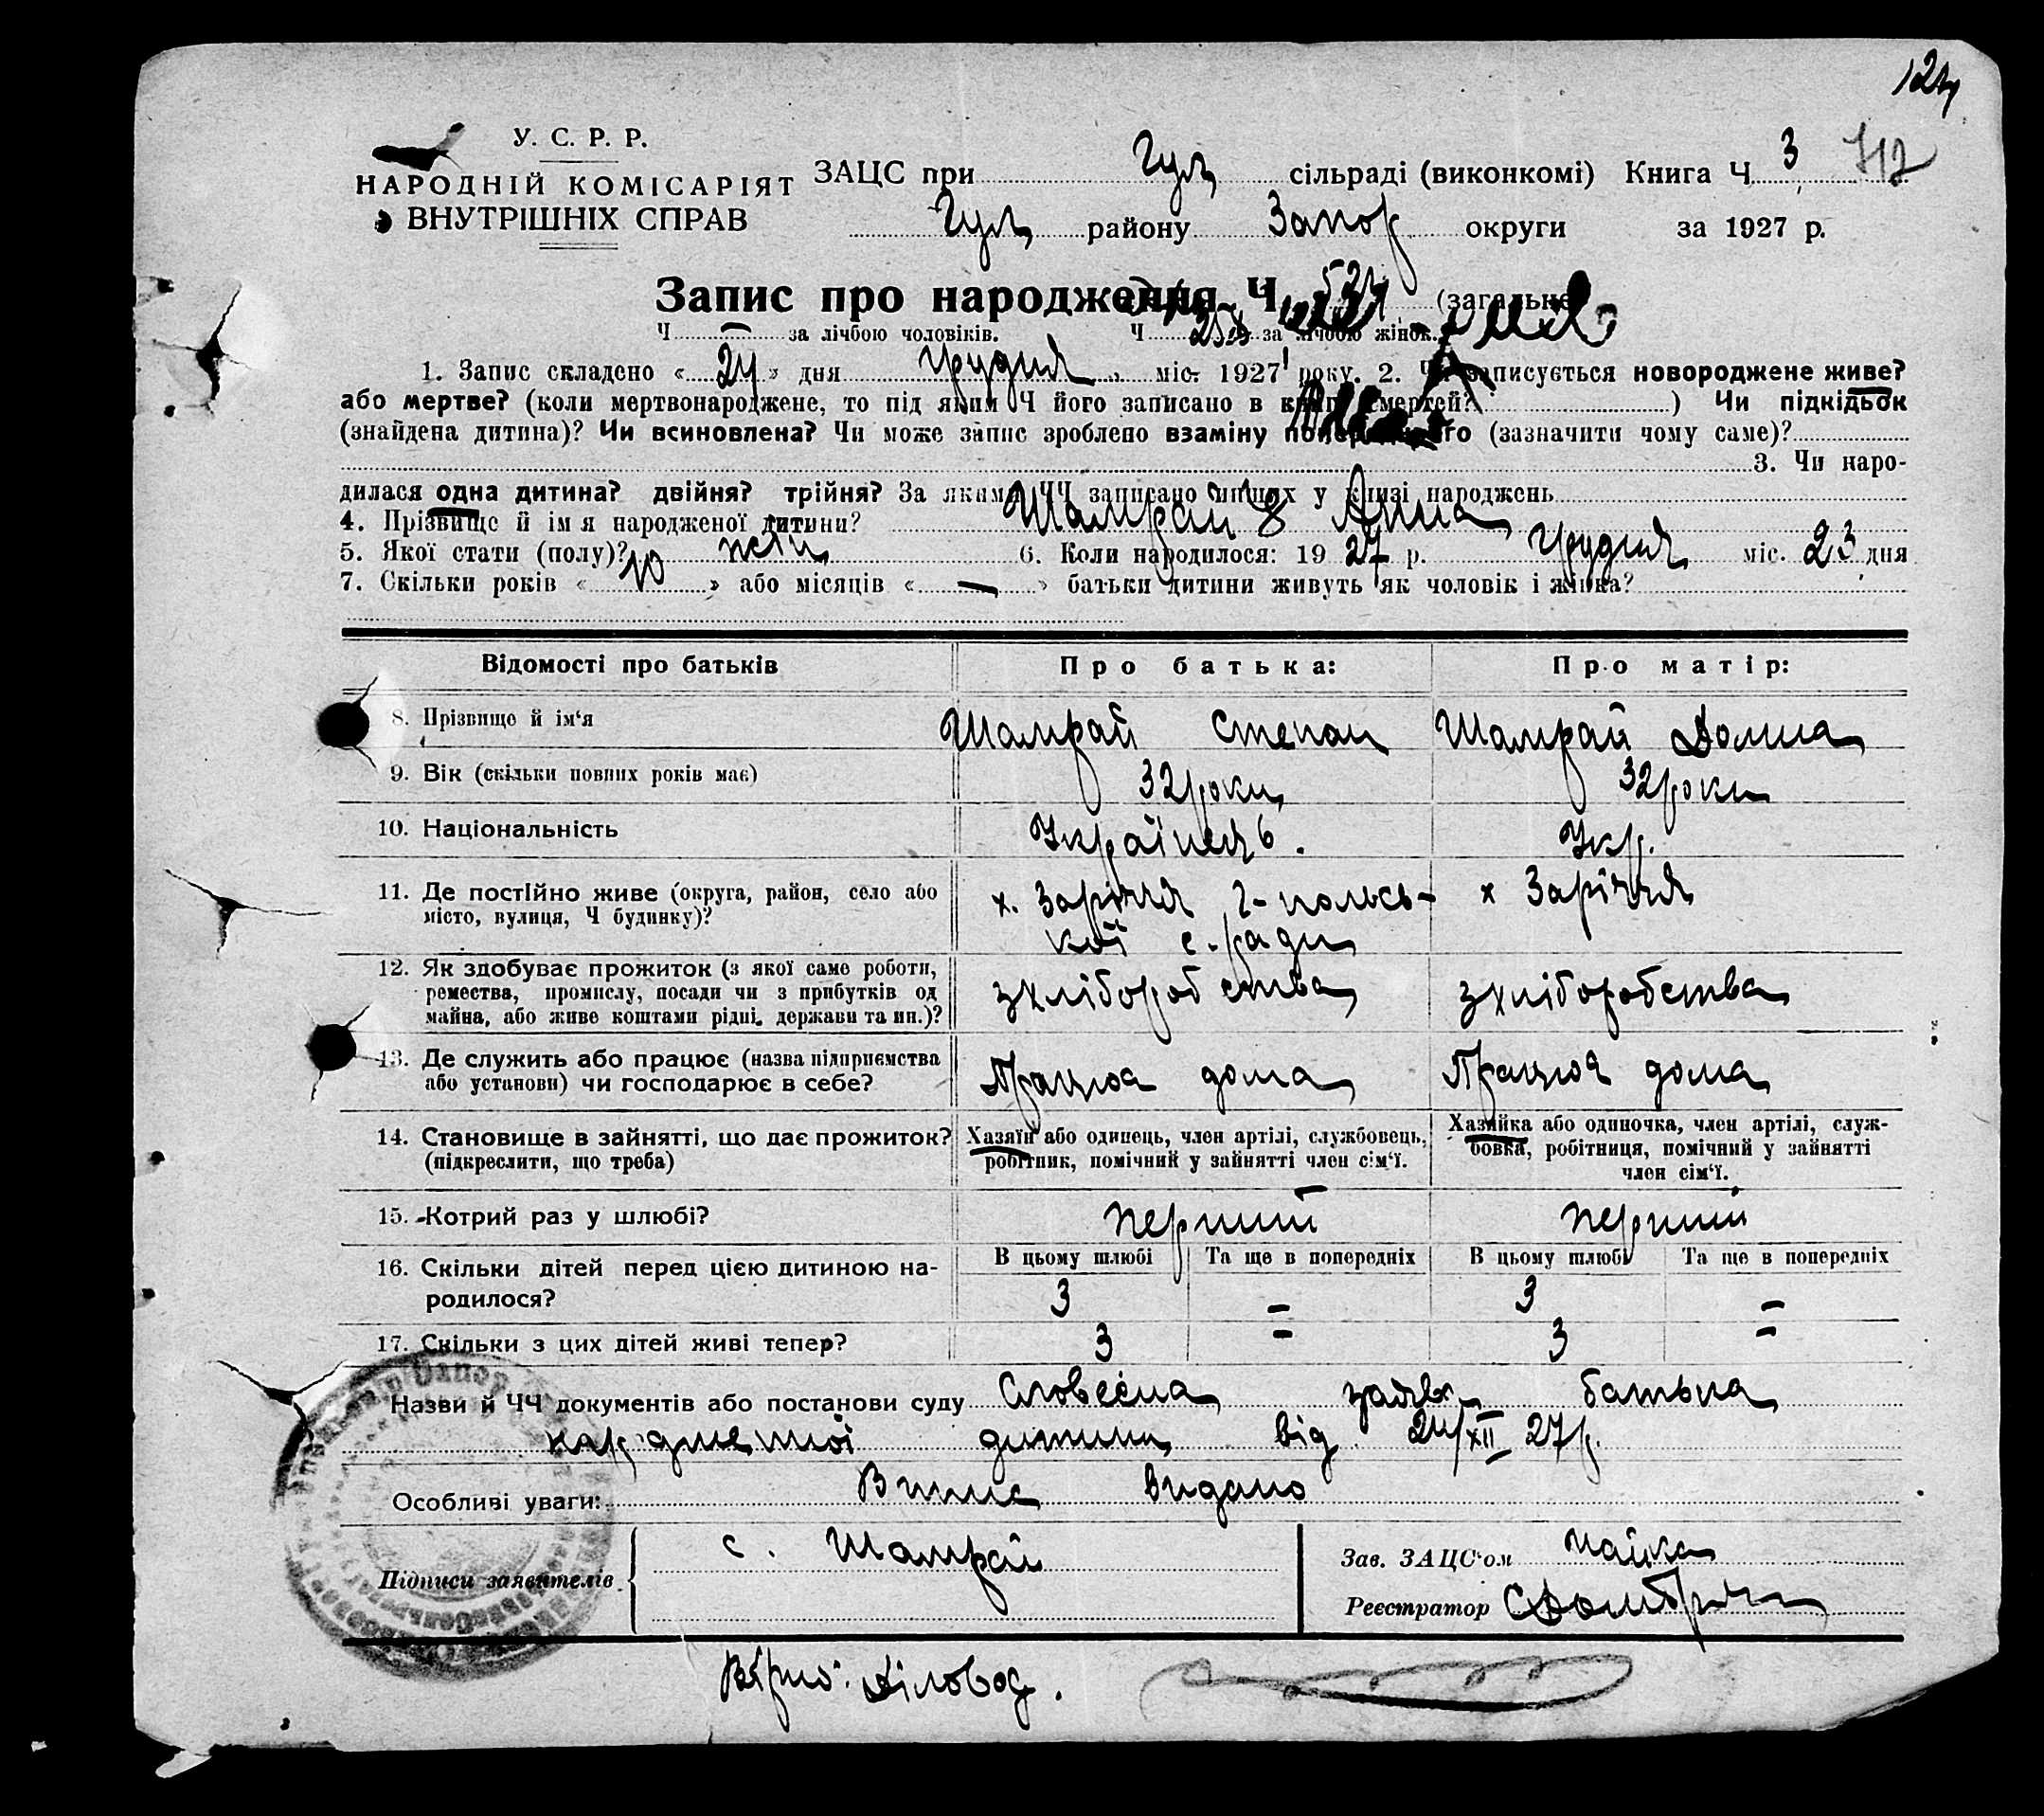 У. С. Р. Р.
НАРОДНІЙ КОМІСАРІЯТ
ВНУТРІШНІХ СПРАВ
ЗАЦС при Гул сільраді (виконкомі) Книга Ч 3
Гул району Запор округи за 1927 р.
Запис про народження Ч (загальне
Ч — за лічбою чоловіків. Ч за лічбою жінок.
1. Запис складено «24» дня грудня міс. 1927 року. 2. Чи записується новороджене живе?
або мертве? (коли мертвонароджене, то під яким Ч його записано в книзі смертей? ) Чи підкідьок
(знайдена дитина)? Чи всиновлена? Чи може запис зроблено взаміну попереднього (зазначити чому саме)?
3. Чи наро-
дилася одна дитина? двійня? трійня? За якими ЧЧ записано инших у книзі народжень
4. Прізвище й ім я народженої дитини? Шамрай Анна
5. Якої стати (полу)? жін 6. Коли народилося: 19 27 р. грудня міс. 23 дня
7. Скільки років «10» або місяців «—» батьки дитини живуть як чоловік і жінка?
Відомості про батьків Про батька: Про матір:
8. Прізвище й ім'я Шамрай Степан Шамрай Домна
9. Вік (скільки повних років має) 32 роки 32 роки
10. Національність Українець. Укр.
11. Де постійно живе (округа, район, село або х. Зарічня Г-польсь- х Зарічня
місто, вулиця, Ч будинку)? кої с. ради
12. Як здобуває прожиток (з якої саме роботи, з хліборобства з хліборобства
ремества, промислу, посади чи з прибутків од
майна, або живе коштами рідні, держави та ин.)?
13. Де служить або працює (назва підприємства Працюа дома Працюа дома
або установи) чи господарює в себе?
14. Становище в зайнятті, що дає прожиток? Хазяїн або одинець, член артілі, службовець, Хазяйка або одиночка, член артілі, служ-
(підкреслити, що треба) робітник, помічний у зайнятті член сім'ї. бовка, робітниця, помічний у зайнятті
член сім'ї.
15. Котрий раз у шлюбі? перший перший
В цьому шлюбі Та ще в попередніх В цьому шлюбі Та ще в попередніх
16. Скільки дітей перед цією дитиною на- 3 = 3 =
родилося?
17. Скільки з цих дітей живі тепер? 3 = 3 =
Назви й ЧЧ документів або постанови суду Словесна заява батька
дитини від 24/XII 27 р.
Особливі уваги: Випис видано
Підписи заявителів с. Шамрай
Зав. ЗАЦС'ом
Реєстратор
Вірно: Діловод.